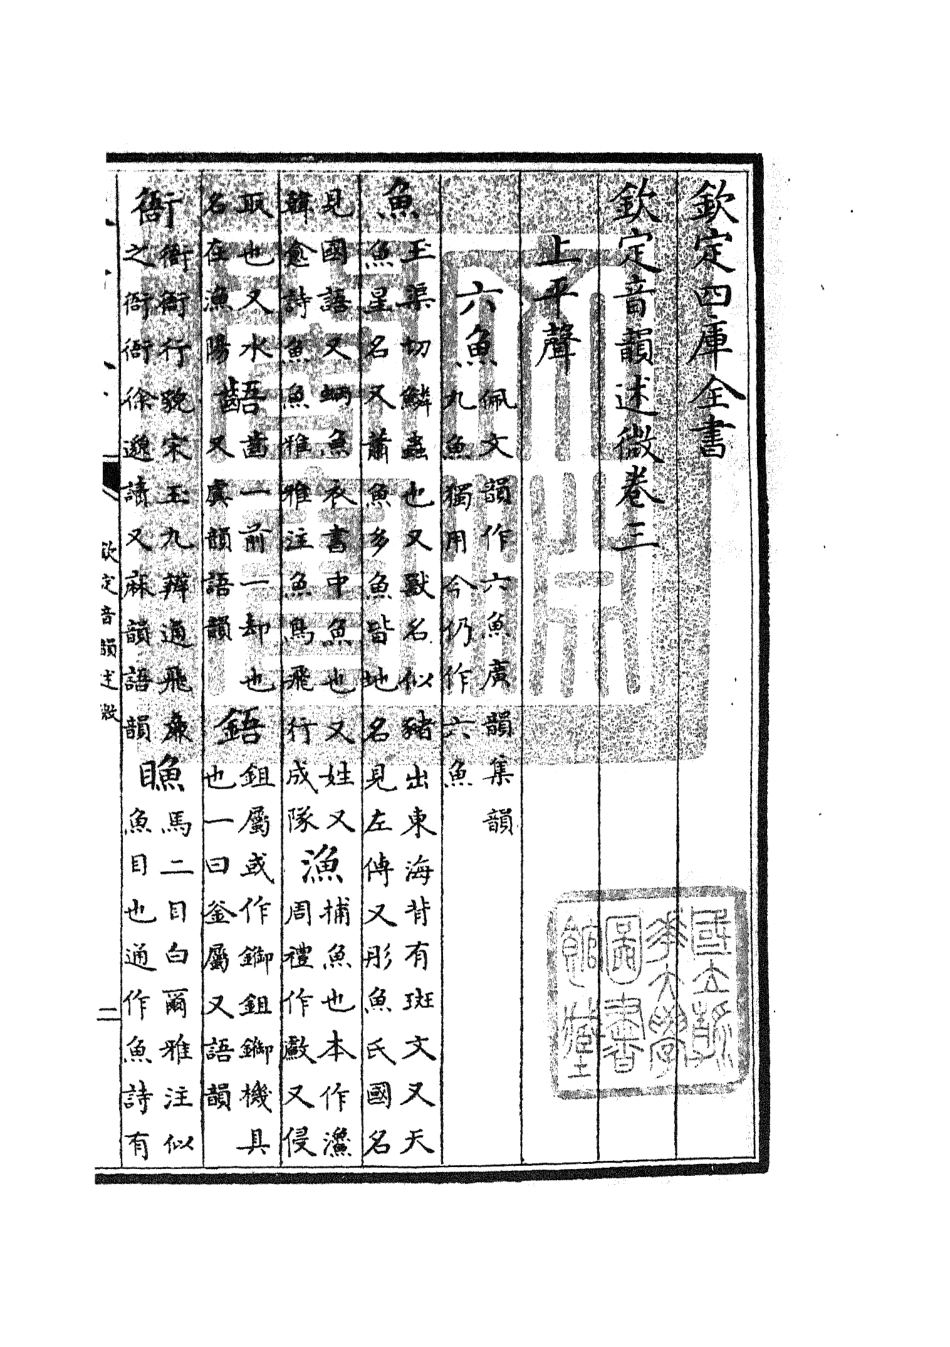 欽定四庫全書
欽定音韻述微卷三
上平聲
六魚佩文韻作六魚廣韻集韻
九魚獨用今仍作六魚
魚玉渠切鱗蟲也又獸名似豬出東海背有斑文又天
魚星名又蕭魚多魚皆地名見左傳又彤魚氏國名
見國語又蛃魚衣書中魚也又姓又
韓愈詩魚魚雅雅注魚馬飛行成隊
漁捕魚也本作𤅢
周禮作䱷又侵
取也又水
名在漁陽
齬齒一前一却也
又虞韻語韻
鋙鉏屬或作䥏鉏䥏機具
也一曰釜屬又語韻
衙衙衙行貌宋玉九辯通飛廉
之衙衙徐邈讀又麻韻語韻
䁩馬二目白爾雅注似
魚目也通作魚詩有
欽定音韻述微
二
國立浙
江大學
圖書
館藏